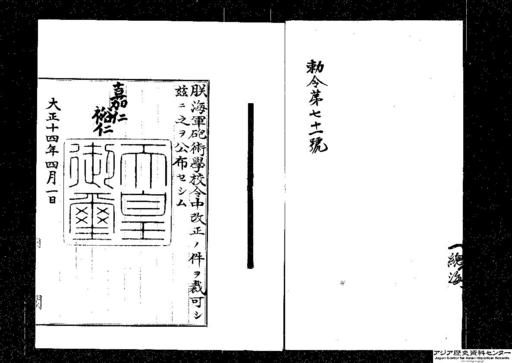 勅令第七十一號
朕海軍砲術學校令中改正ノ件ヲ裁可シ
茲ニ之ヲ公布セシム
嘉仁
裕仁
天皇
御璽
大正十四年四月一日
アジア歴史資料センター
Japan Center for Asian Historical Records